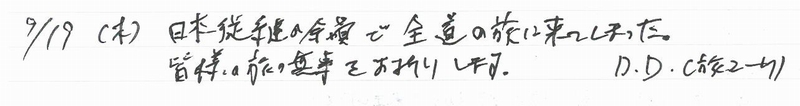 9/19 (木) 日本縦断の余韻で全道の旅に来てしまった。
皆様の旅の無事をお祈りします。 D.D. (旅